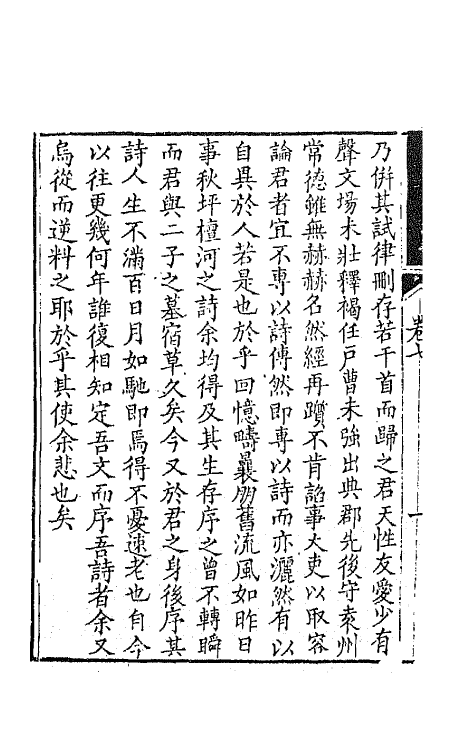 乃併其試律刪存若干首而歸之君天性友愛少有
聲文場未壯釋褐任戶曹未強出典郡先後守袁州
常德雖無赫赫名然經再躓不肯諂事大吏以取容
論君者宜不專以詩傳然即專以詩而亦灑然有以
自異於人若是也於乎回憶疇曩朋舊流風如昨日
事秋坪檀河之詩余均得及其生存序之曾不轉瞬
而君與二子之墓宿草久矣今又於君之身後序其
詩人生不滿百日月如馳即焉得不憂速老也自今
以往更幾何年誰復相知定吾文而序吾詩者余又
烏從而逆料之耶於乎其使余悲也矣
卷七
一